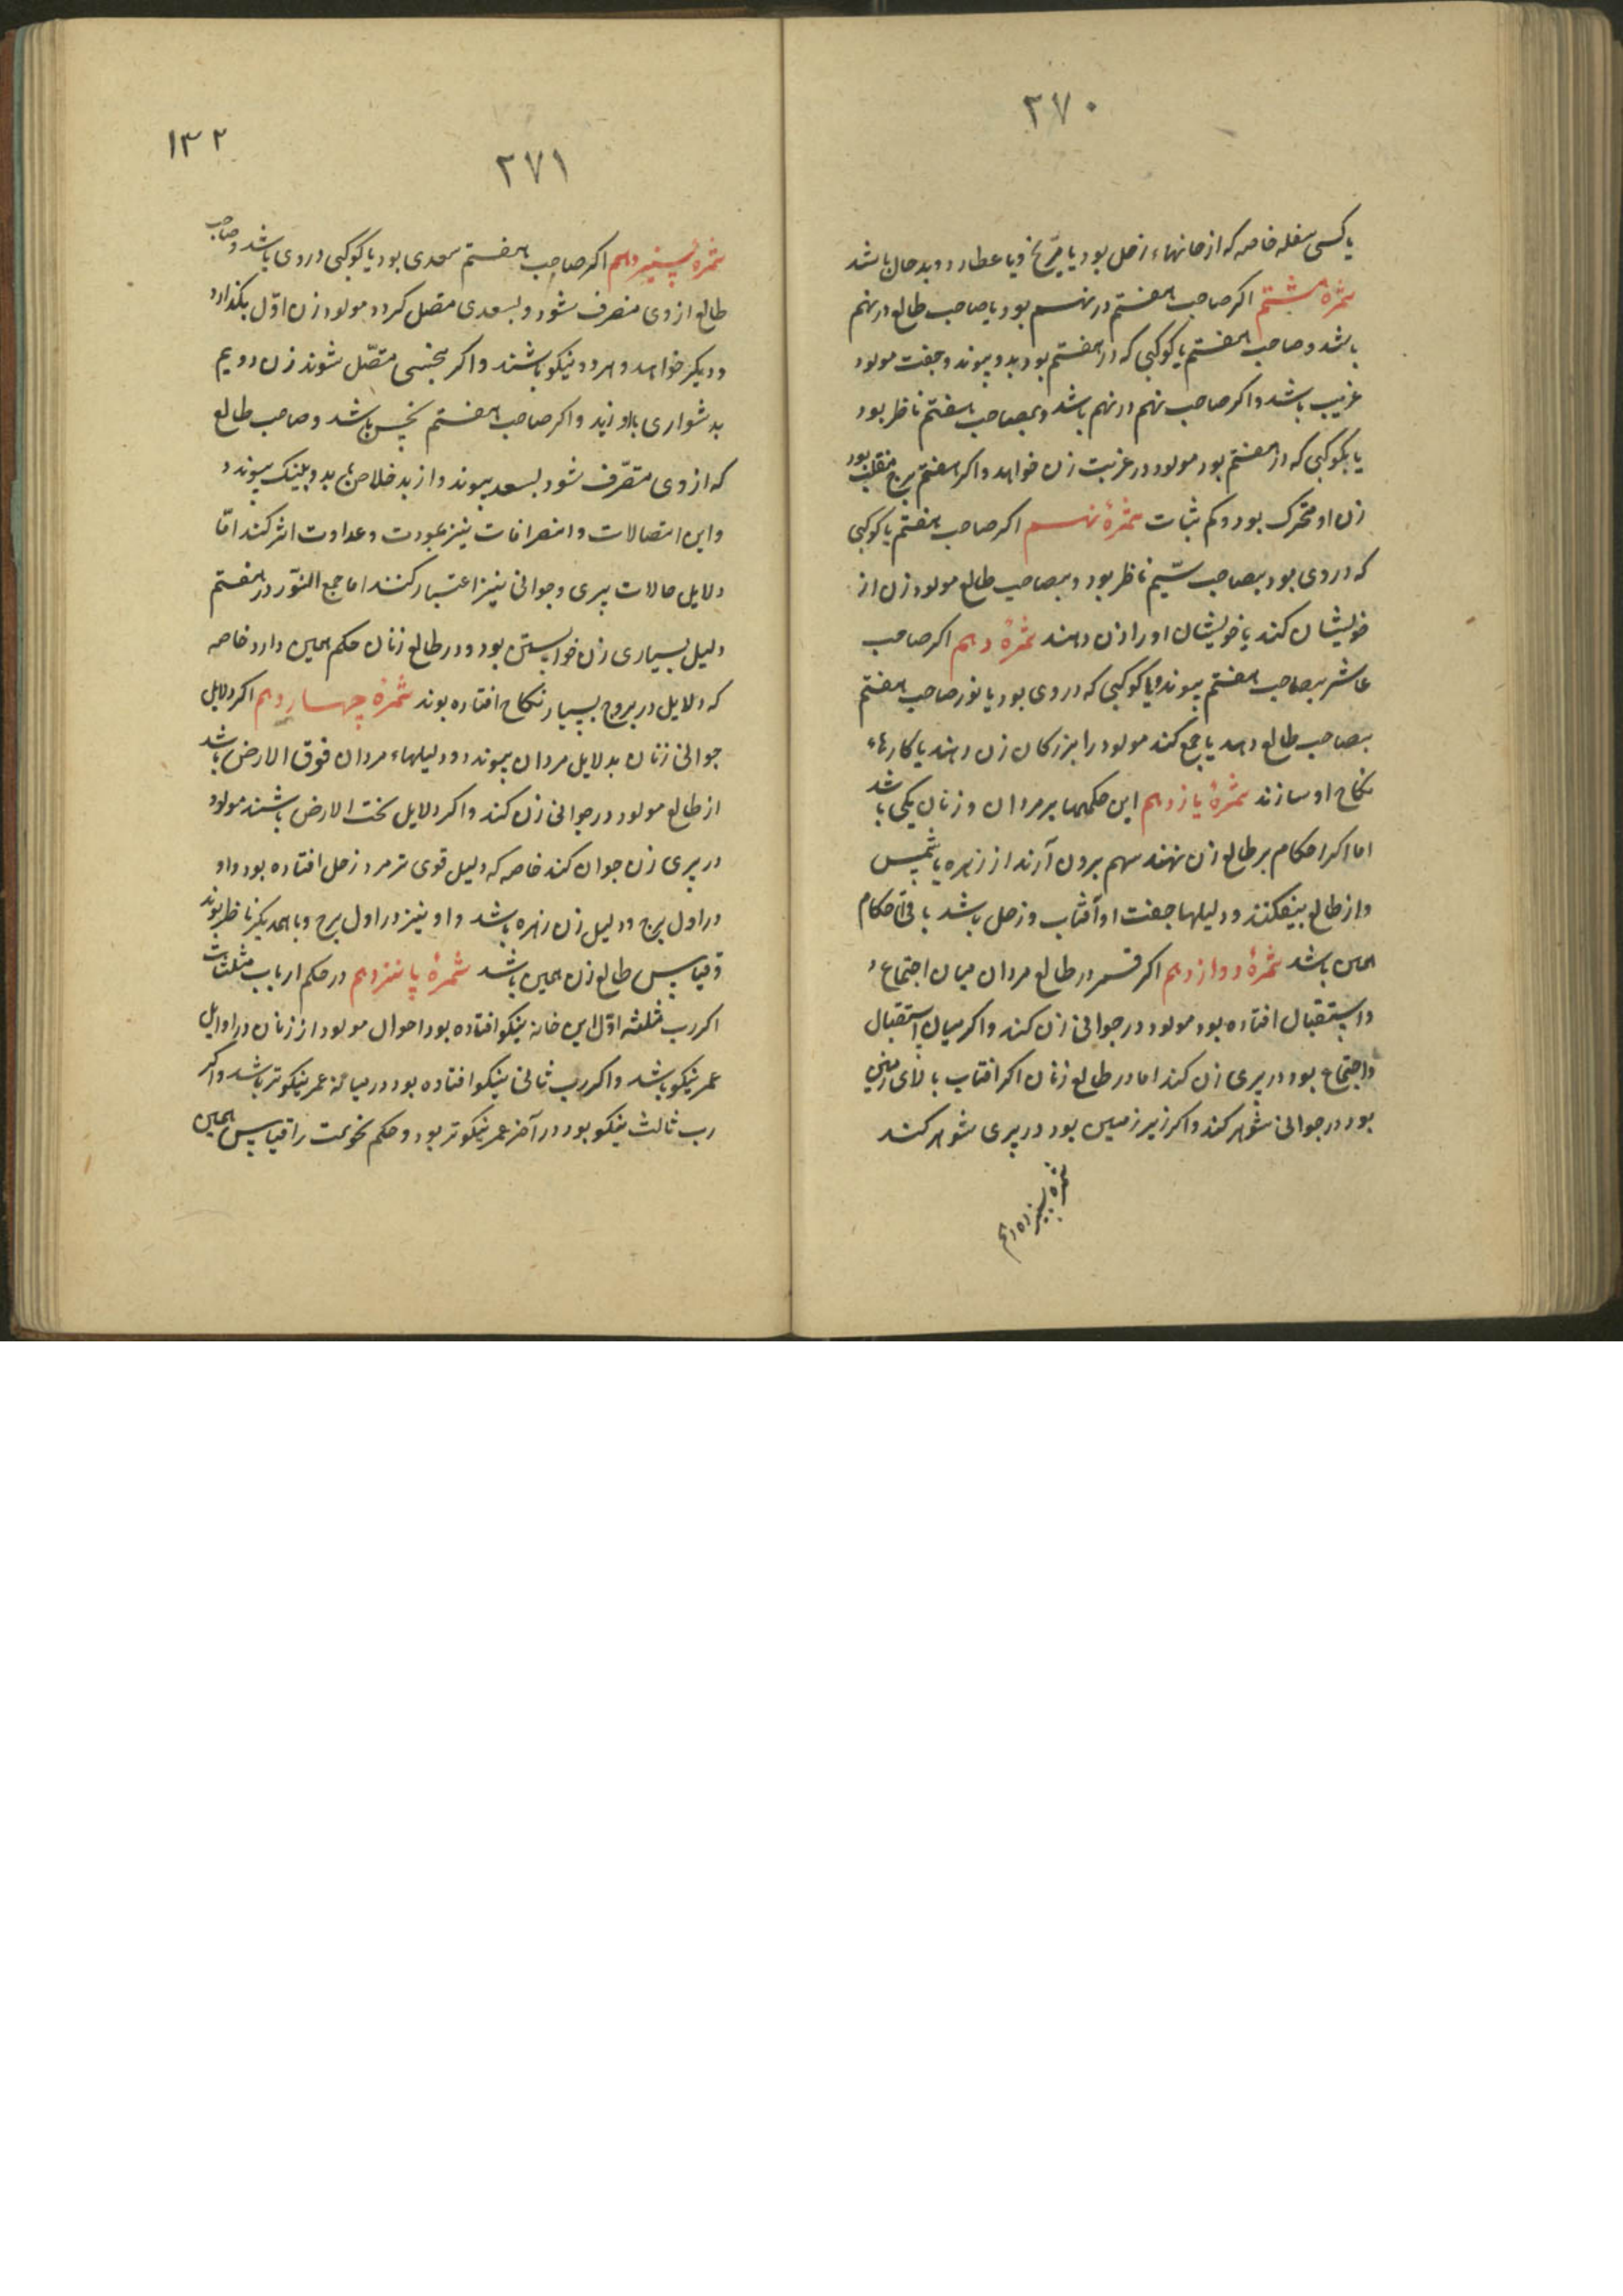 ۲۷۰
یا کسی سفله خاصه که از خانهاء زحل بود یا مریخ و یا عطارد و بد حال باشد
ثمرهٔ هشتم اکر صاحب هفتم در نهم بود یا صاحب طالع در نهم
باشد و صاحب هفتم یا کوکبی که در هفتم بود بدو پیوندد جفت مولود
غریب باشد و اکر صاحب نهم در نهم باشد و بصاحب هفتم ناظر بود
یا بکوکبی که در هفتم بود مولود در غربت زن خواهد و اکر هفتم برج منقلب بود
زن او متحرک بود و کم ثبات ثمرهٔ نهم اکر صاحب هفتم یا کوکبی
که در وی بود بصاحب سیم ناظر بود و بصاحب طالع مولود زن از
خویشان کند یا خویشان او را زن دهند ثمرهٔ دهم اکر صاحب
عاشر بصاحب هفتم پیوندد یا کوکبی که در وی بود یا نور صاحب هفتم
بصاحب طالع دهد یا جمع کند مولود را بزرکان زن دهند یا کارهاء
نکاح او سازند ثمرهٔ یازدهم این حکمها بر مردان و زنان یکی باشد
اما اکر احکام بر طالع زن نهند سهم برون آرند از زهره یا شمس
و از طالع بیفکنند و دلیلها جفت او آفتاب و زحل باشد باقی احکام
همین باشد ثمرهٔ دوازدهم اکر قمر در طالع مردان میان اجتماع و
و استقبال افتاده بود مولود در جوانی زن کند و اکر میان استقبال
و اجتماع بود در پیری زن کند اما در طالع زنان اکر افتاب بالای زمین
بود در جوانی شوهر کند و اکر زیر زمین بود در پیری شوهر کند
ثمره سیزدهم
۱۳۲
۲۷۱
ثمرهٔ سیزدهم اکر صاحب هفتم سعدی بود یا کوکبی در وی باشد و صاحب
طالع از وی منصرف شود و بسعدی متصل کردد مولود زن اوّل بکذارد
و دیکر خواهد و هر دو نیکو باشند و اکر بنحسی متّصل شوند زن دویم
بدشواری با او زید و اکر صاحب هفتم نحس باشد و صاحب طالع
که از وی متصرّف شود بسعد پیوندد از بد خلاص یابد و بنیک پیوندد
و این اتصالات و انصرافات نیز بمودت و عداوت اثر کند امّا
دلایل حالات پیری و جوانی نیز اعتبار کنند اما جمع النّور در هفتم
دلیل بسیاری زن خواستن بود و در طالع زنان حکم همین دارد خاصه
که دلایل در بروج بسیار نکاح افتاده بوند ثمرهٔ چهاردهم اکر دلایل
جوانی زنان بدلایل مردان پیوندد و دلیلهاء مردان فوق الارض باشد
از طالع مولود در جوانی زن کند و اکر دلایل تحت الارض باشند مولود
در پیری زن جوان کند خاصه که دلیل قوی تر مرد زحل افتاده بود و او
در اول برج و دلیل زن زهره باشد و او نیز در اول برج و با همدیکر ناظر بوند
و قیاس طالع زن همین باشد ثمرهٔ پانزدهم در حکم ارباب مثلثات
اکر رب مثلثه اوّل این خانه نیکو افتاده بود احوال مولود از زنان در اوایل
عمر نیکو باشد و اکر رب ثانی نیکو افتاده بود در میانهٔ عمر نیکوتر باشد و اکر
رب ثالث نیکو بود در آخر عمر نیکوتر بود و حکم نحوست را قیاس همین